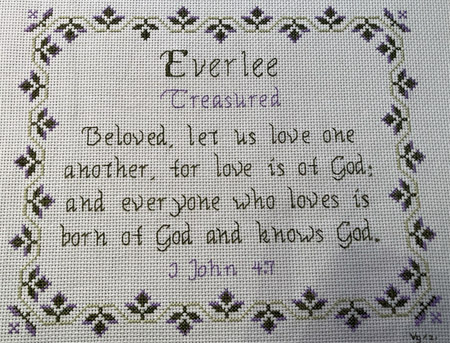 Everlee
Treasured
Beloved, let us love one
another, for love is of God;
and everyone who loves is
born of God and knows God.
I John 4:7